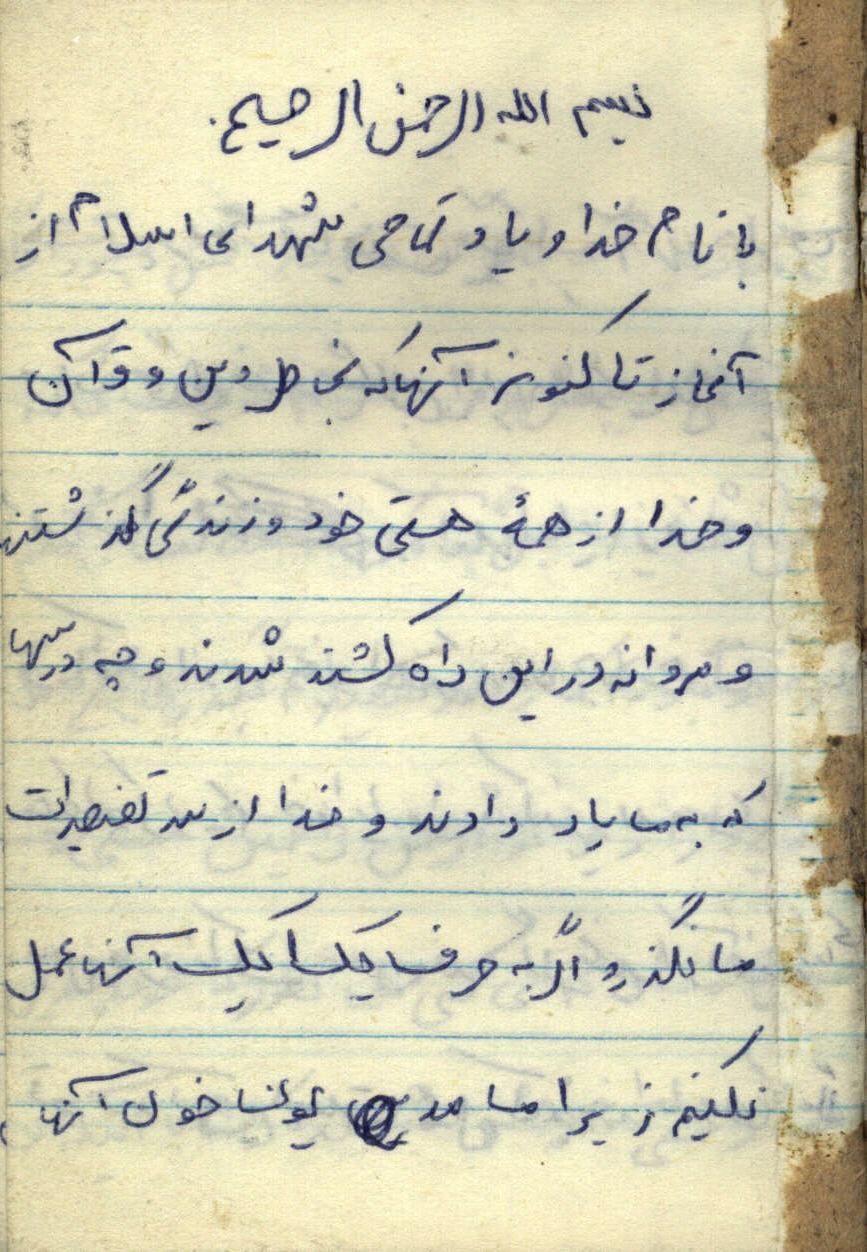 بسم الله الرحمن الرحیم.
با نام خدا و یاد تمامی شهدای اسلام از
آغاز تا کنون آنها که بخاطر دین و قرآن
و خدا از همهٔ هستی خود و زندگی گذشتند
و مردانه در این راه کشته شدند و چه درسها
که به ما یاد دادند و خدا از سر تقصیرات
ما نگذرد اگر به حرف یک یک آنها عمل
نکنیم زیرا ما مدیون خون آنها